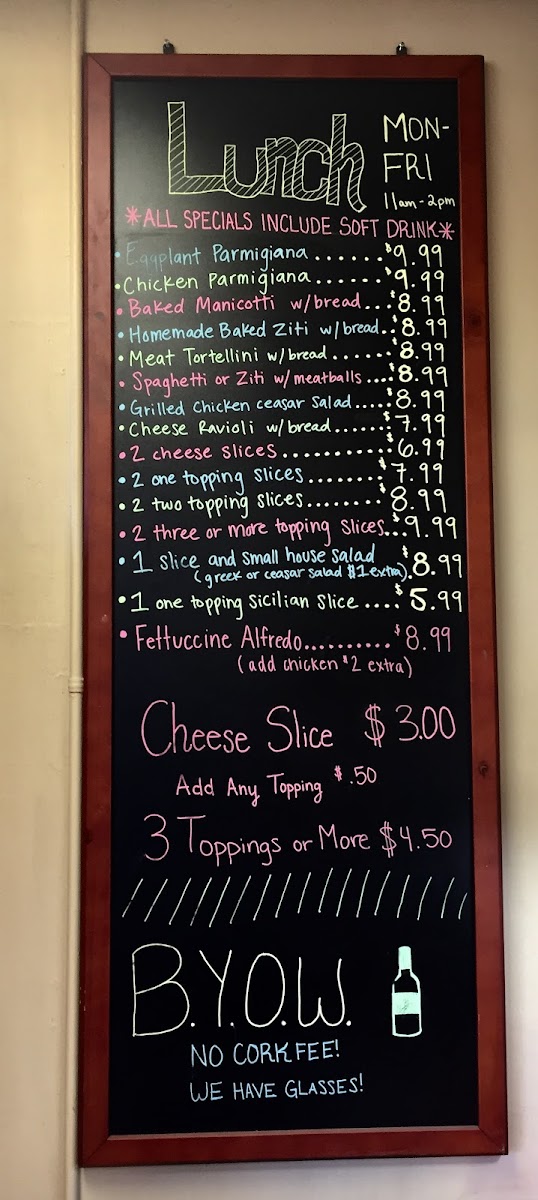 Lunch MON-
FRI
11am-2pm
*ALL SPECIALS INCLUDE SOFT DRINK*
• Eggplant Parmigiana ...... $9.99
• Chicken Parmigiana ...... $9.99
• Baked Manicotti w/bread... $8.99
• Homemade Baked Ziti w/bread.. $8.99
• Meat Tortellini w/bread...... $8.99
• Spaghetti or Ziti w/meatballs .... $8.99
• Grilled Chicken ceasar salad.... $8.99
• Cheese Ravioli w/bread...... $7.99
• 2 cheese slices ........... $6.99
• 2 one topping slices........ $7.99
• 2 two topping slices........ $8.99
• 2 three or more topping slices... $9.99
• 1 slice and small house salad $8.99
(greek or ceasar salad $1 extra).
• 1 one topping sicilian slice .... $5.99
• Fettuccine Alfredo.......... $8.99
(add chicken $2 extra)
Cheese Slice $3.00
Add Any Topping $.50
3 Toppings or More $4.50
B.Y.O.W.
NO CORK FEE!
WE HAVE GLASSES!